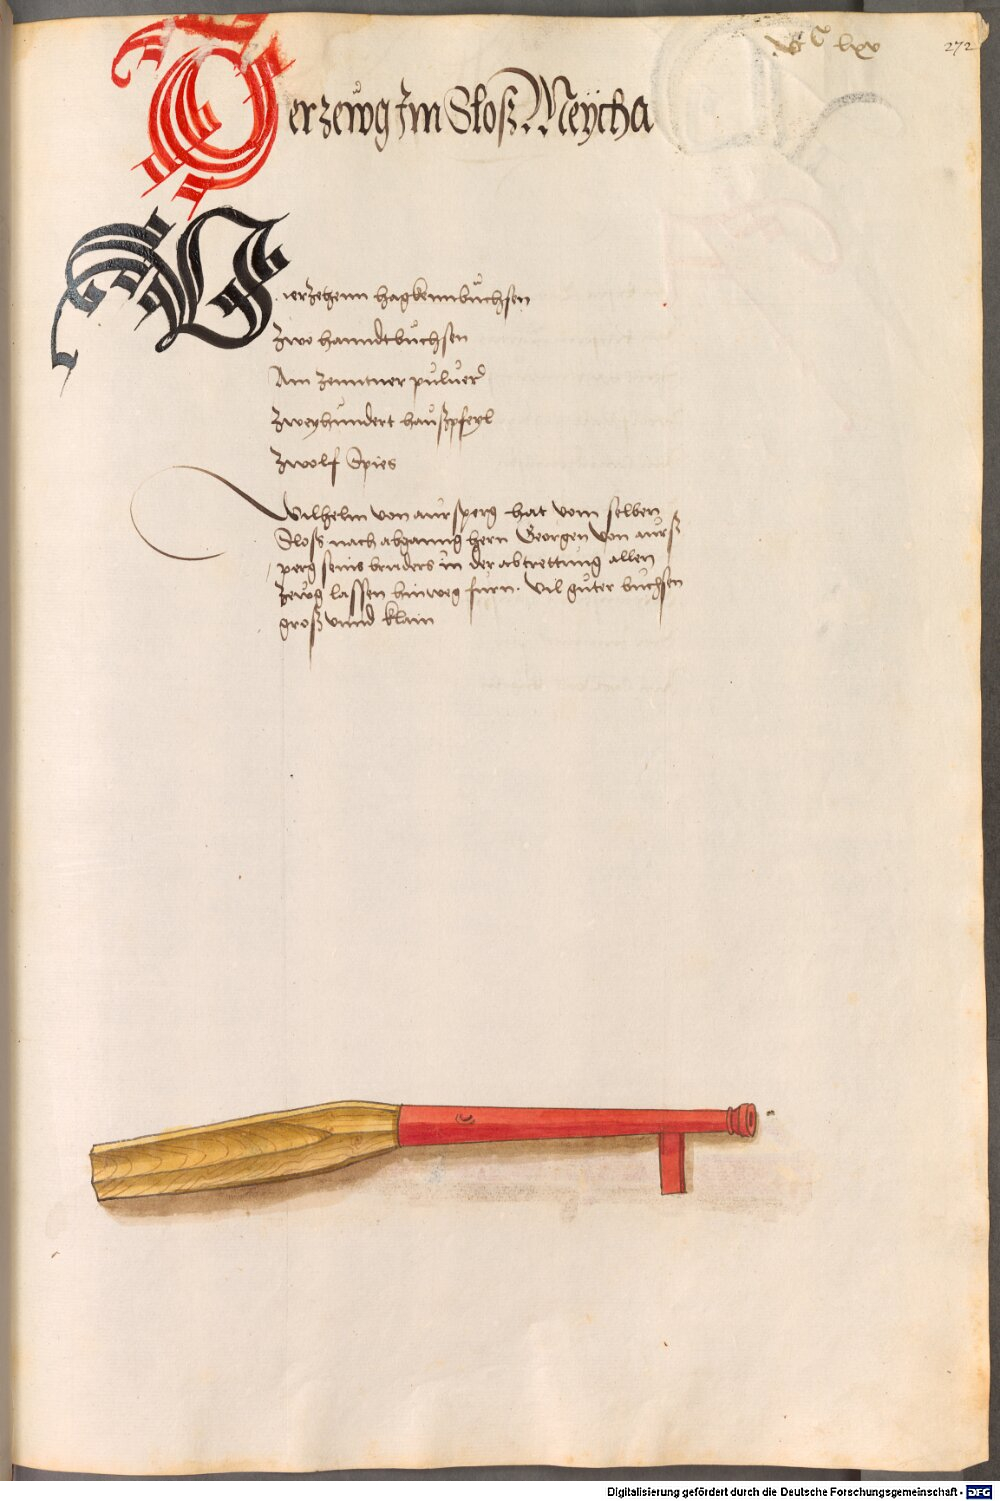 lxv
272
Der zeẘg Im Sloß Meÿcha
Vierzehenn hagkennbůchsen
Zwo hanndtbůchsen
Ain zenntner pulver
Zweyhundert haußpfeyl
Zwolf Spies
Wilhelm von aursperg hat vom selben
Sloss nach abganng hern Georgen von aurß
perg seins bruders in der abtrettung allen
Zewg lassen hinweg furn. vil guter buchsen
groß unnd klain
Digitalisierung gefördert durch die Deutsche Forschungsgemeinschaft - DFG